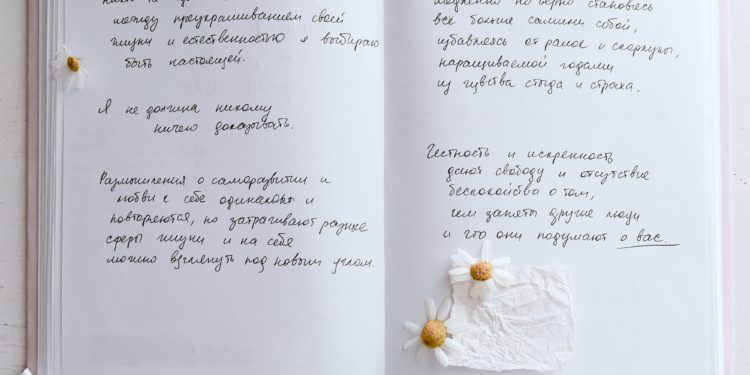 между преукрашиванием своей
жизни и естественностью я выбираю
быть настоящей.
Я не должна никому
ничего доказывать.
Размышления о саморазвитии и
любви к себе одинаковы и
повторяются, но затрагивают разные
сферы жизни и на себя
можно взглянуть под новым углом.
медленно но верно становлюсь
всё больше самими собой,
избавляясь от рамок и скорлупы,
наращиваемой годами
из чувства стыда и страха.
Честность и искренность
дают свободу и отсутствие
беспокойства о том,
чем заняты другие люди
и что они подумают о вас.